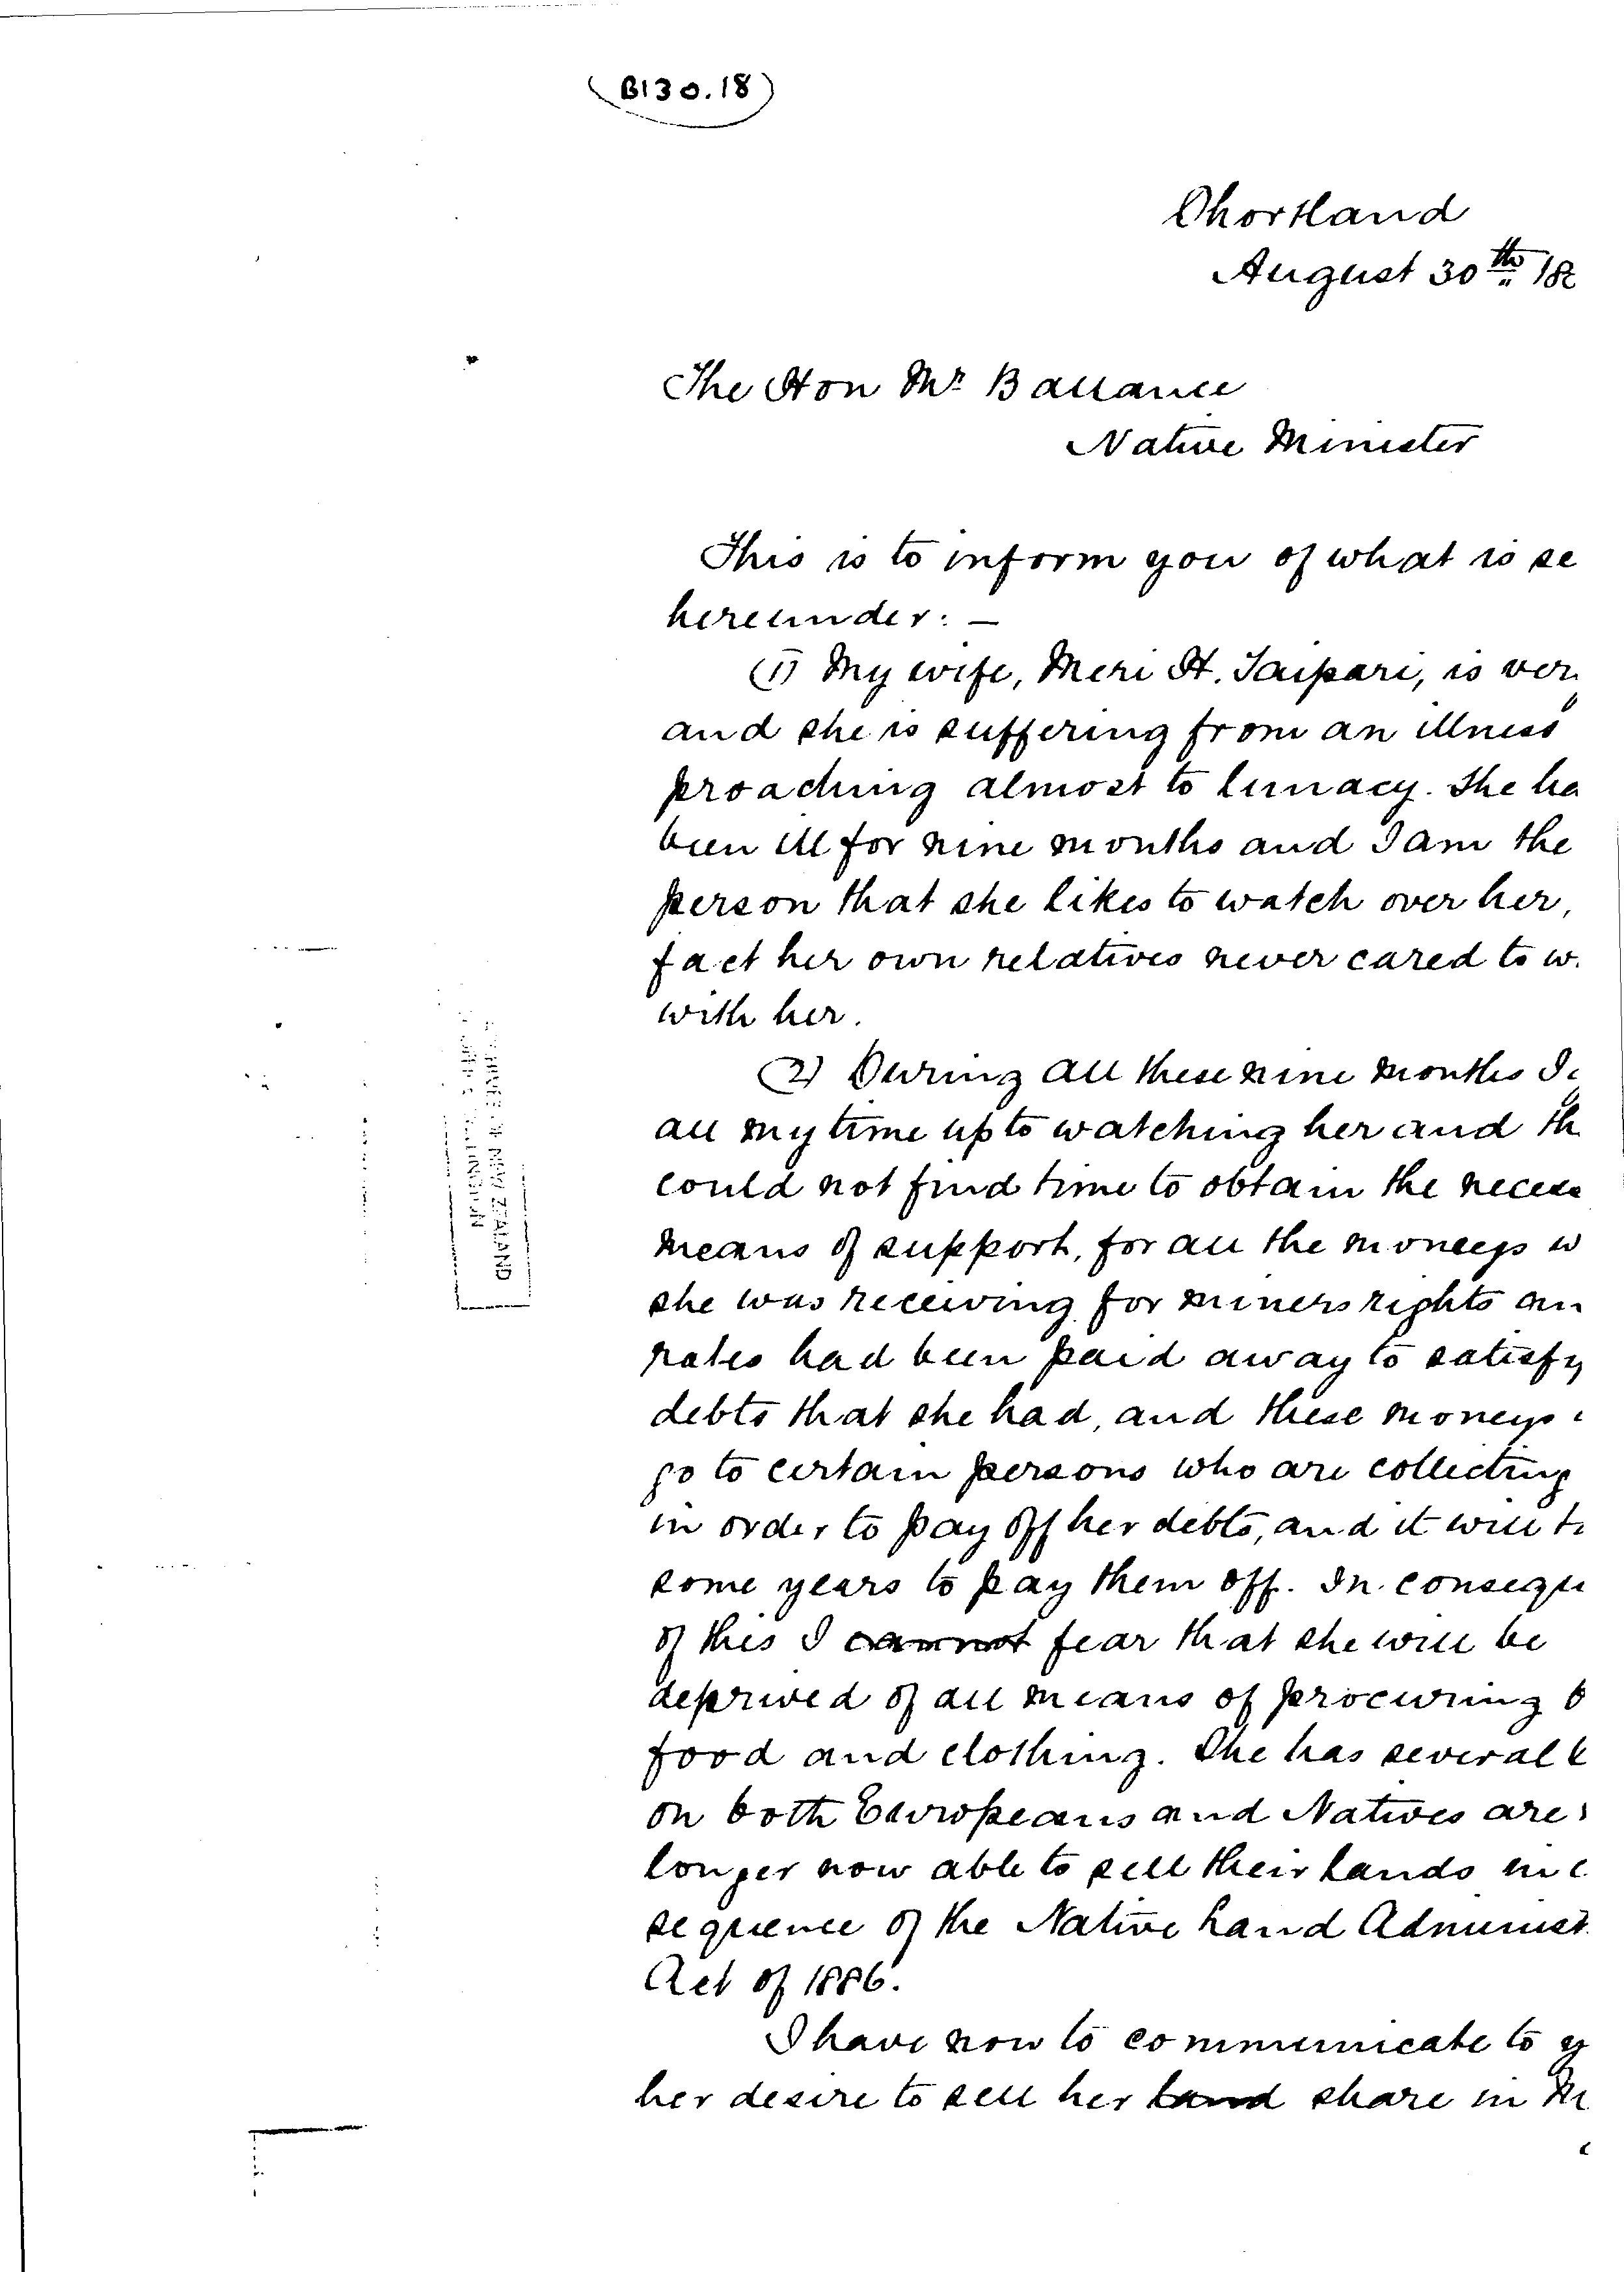 (B130.18)
Shortland
August 30th 18
The Hon Mr. Ballance
Native Minister
This is to inform you of what is se
hereunder: —
(1) My wife, Meri H. Taipari, is ver
and she is suffering from an illness
proaching almost to lunacy. She ha
been ill for nine months and I am the
person that she likes to watch over her,
fact her own relatives never cared to w
with her.
(2) During all these nine months I
all my time up to watching her and th
could not find time to obtain the necess
means of support, for all the moneys w
she was receiving for miners rights an
rates had been paid away to satisfy
debts that she had, and these moneys
go to certain persons who are collecting
in order to pay off her debts, and it will t
some years to pay them off. In consequ
of this I cannot fear that she will be
deprived of all means of procuring b
food and clothing. She has several b
on both Europeans and Natives are
longer now able to sell their lands in c
sequence of the Native Land Administ
Act of 1886.
I have now to communicate to y
her desire to sell her land share in